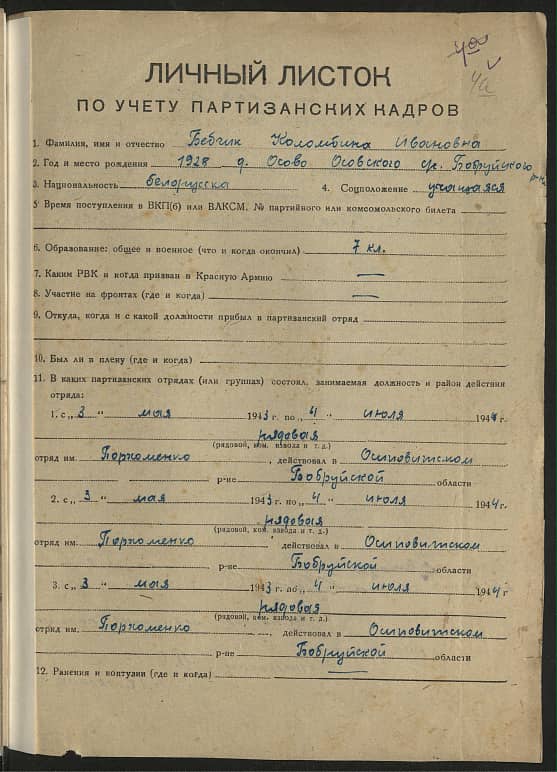 4а
ЛИЧНЫЙ ЛИСТОК
ПО УЧЕТУ ПАРТИЗАНСКИХ КАДРОВ
1. Фамилия, имя и отчество Бебчик Коломбина Ивановна
2. Год и место рождения 1928 д. Осово Осовского с/с. Бобруйского р-на
3. Национальность белорусска 4. Соцположение учащаяся
5 Время поступления в ВКП(б) или ВЛКСМ, № партийного или комсомольского билета
6. Образование: общее и военное (что и когда окончил) 7 кл.
7. Каким РВК и когда призван в Красную Армию —
8. Участие на фронтах (где и когда) —
9. Откуда, когда и с какой должности прибыл в партизанский отряд
10. Был ли в плену (где и когда)
11. В каких партизанских отрядах (или группах) состоял, занимаемая должность и район действия
отряда:
1. с „ 3 “ мая 1943 г. по „ 4 “ июля 1944 г.
рядовая
(рядовой, ком. взвода и т. д.)
отряд им. Порхоменко, действовал в Осиповитском
р-не Бобруйской области
2. с „ 3 “ мая 1943 г. по „ 4 “ июля 1944 г.
рядовая
(рядовой, ком. взвода и т. д.)
отряд им. Порхоменко, действовал в Осиповитском
р-не Бобруйской области
3. с „ 3 “ мая 1943 г. по „ 4 “ июля 1944 г
рядовая
(рядовой, ком. взвода и т. д.)
отряд им. Порхоменко, действовал в Осиповитском
р-не Бобруйской области
12. Ранения и контузии (где и когда) —